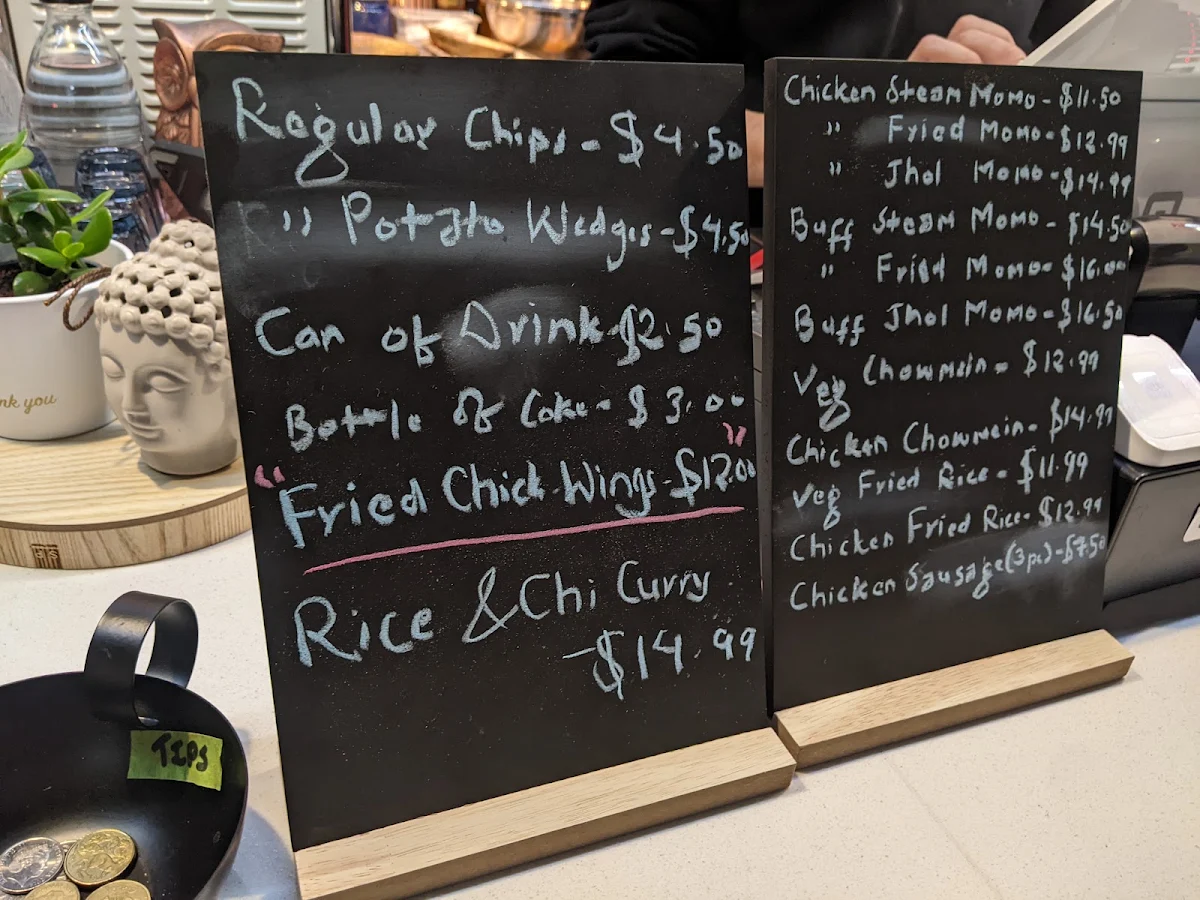 Regular Chips - $4.50
" Potato Wedges - $4.50
Can of Drink - $2.50
Bottle of Coke - $3.00
"Fried Chick Wings - $12.00"
Rice & Chi Curry
- $14.99
Chicken Steam Momo - $11.50
" Fried Momo - $12.99
" Jhol Momo - $14.99
Buff Steam Momo - $14.50
" Fried Momo - $16.00
Buff Jhol Momo - $16.50
Veg Chowmein - $12.99
Chicken Chowmein - $14.99
Veg Fried Rice - $11.99
Chicken Fried Rice - $12.99
Chicken Sausage (3pc) - $7.50
nk you
TIPS